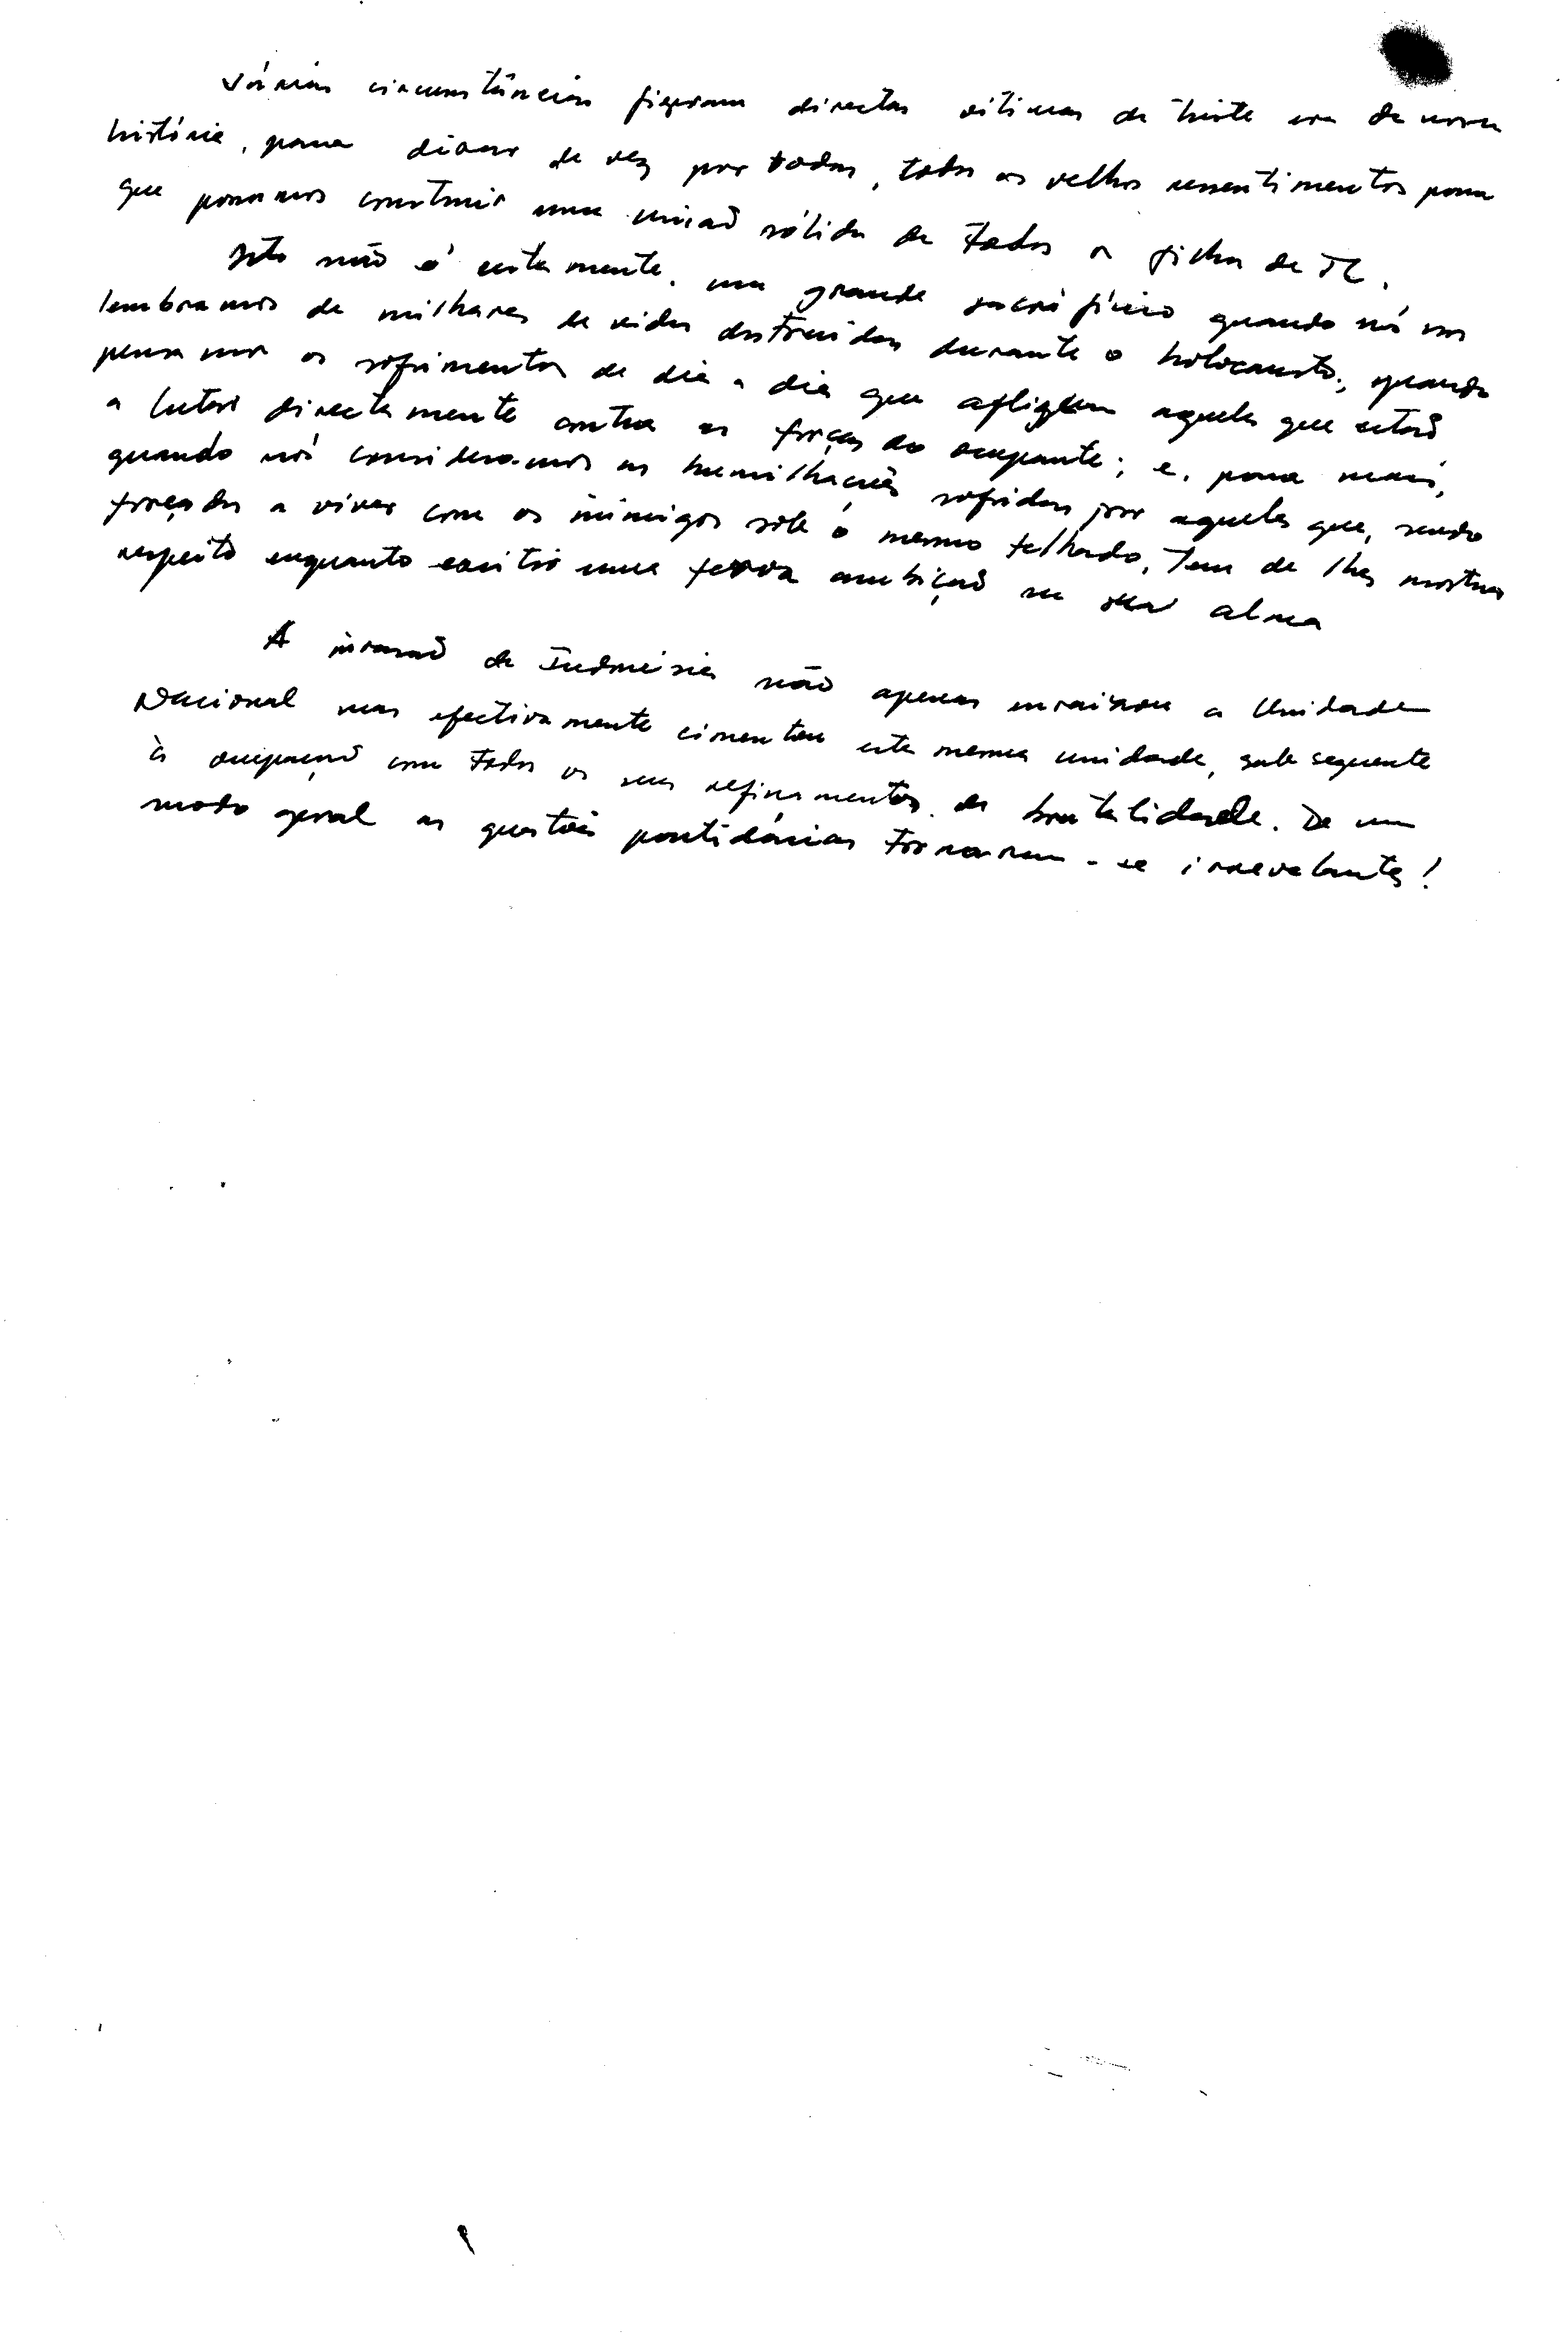 Várias circunstâncias fizeram directas vitimas da triste era da nossa
história, para deixar de vez por todas, todos os velhos ressentimentos para
que possamos construir uma união sólida de todos os filhos de TL.
Isto não é certamente, um grande sacrifício quando nós nos
lembramos de milhares de vidas destruidas durante o holocausto; quando
pensamos os sofrimentos de dia a dia que afligem aqueles que estão
a lutar directamente contra as forças do ocupante; e, para mais,
quando nós consideramos as humilhações sofridas por aqueles que, sendo
forçados a viver com os inimigos sob o mesmo telhado, Tem de lhes mostrar
respeito enquanto existir uma feroz ambição na sua alma
A invasão da Indonésia não apenas enraizou a Unidade
Nacional mas efectivamente cimentou esta mesma unidade, subsequente
à ocupação com todos os seus refinamentos de brutalidade. De um
modo geral as questões partidárias tornaram-se irrevelantes!